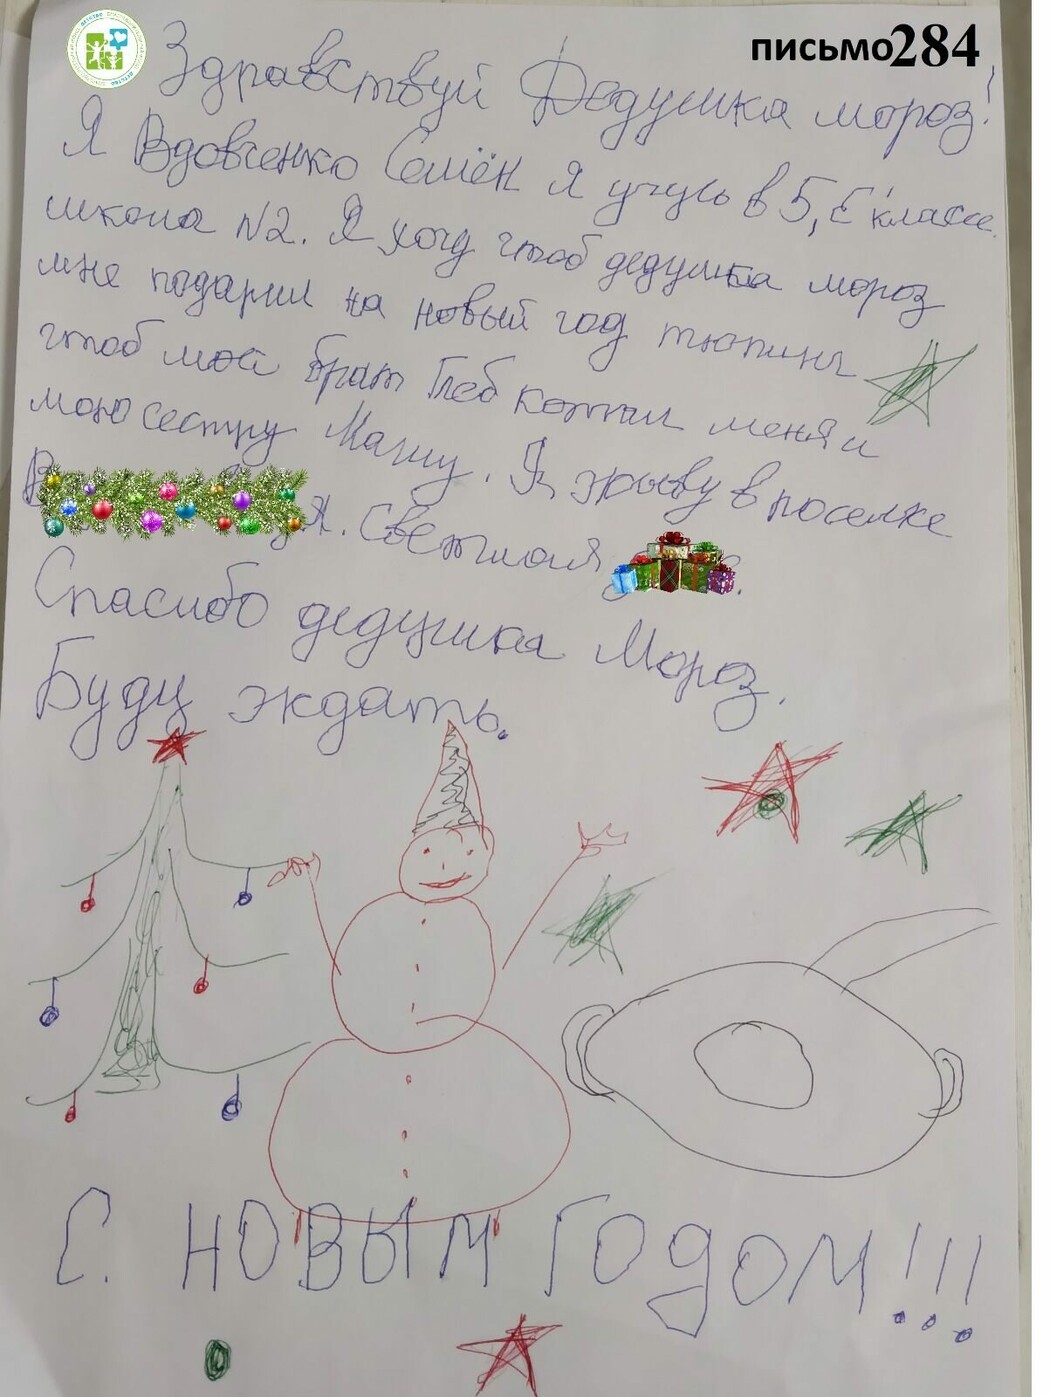 письмо284
Здравствуй Дедушка мороз!
Я Вдовченко Семён я учусь в 5,Б классе.
школа N2. Я хочу чтоб дедушка мороз
мне подарил на новый год тюпинг
чтоб мой брат Глеб котил меня и
мою сестру Машу. Я жрыву в поселке
я. Светлая
Спасибо дедушка Мороз.
Буду ждать.
С. НОВЫМ ГОДОМ!!!